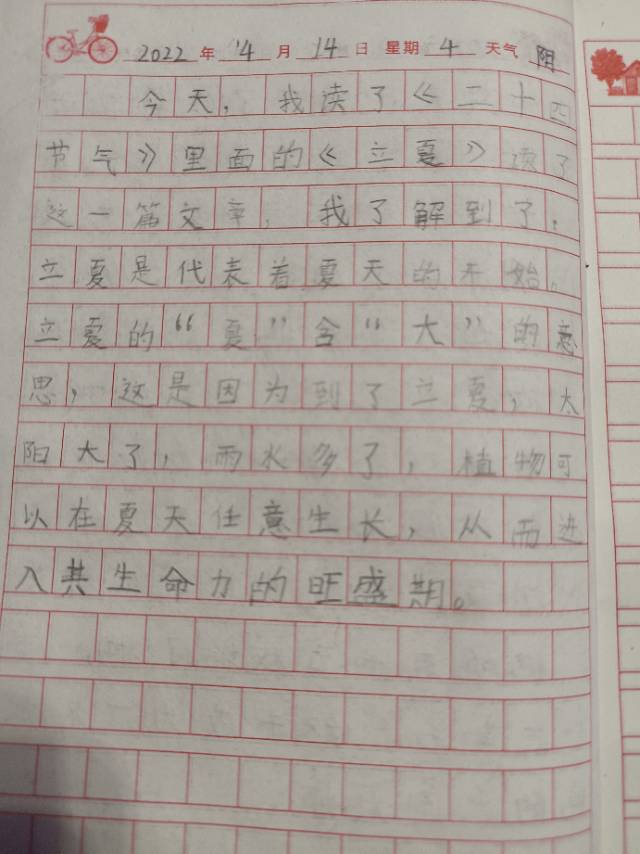 2022年4月14日 星期4 天气阳
今天，我读了《二十四
节气》里面的《立夏》读了
这一篇文章，我了解到了：
立夏是代表着夏天的开始。
立夏的“夏”含“大”的意
思，这是因为到了立夏，太
阳大了，雨水多了，植物可
以在夏天任意生长，从而进
入共生命力的旺盛期。